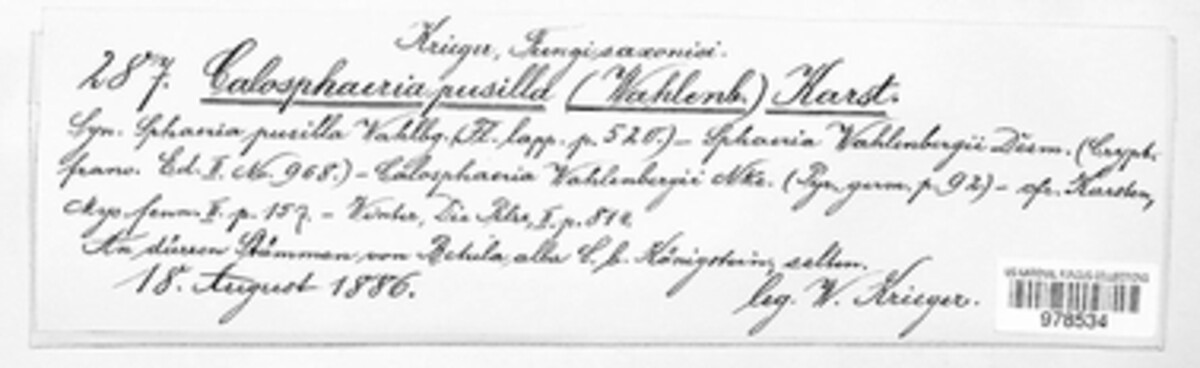 Krieger, Fungi saxonici.
287. Calosphaeria pusilla (Wahlenb.) Karst.
Syn. Sphaeria pusilla Wahlbg. (Fl. lapp. p. 520.) – Sphaeria Wahlenbergii Desm. (Crypt.
franc. Ed. II. No. 968.) – Calosphaeria Wahlenbergii Nke. (Pyr. germ. p. 92) – cfr. Karsten,
Myc. fenn. II. p. 157. – Winter, Die Pilze, II. p. 812.
An dürren Stämmen von Betula alba L. b. Königstein, selten.
18. August 1886.
leg. W. Krieger.
US NATIONAL FUNGUS COLLECTIONS
978534